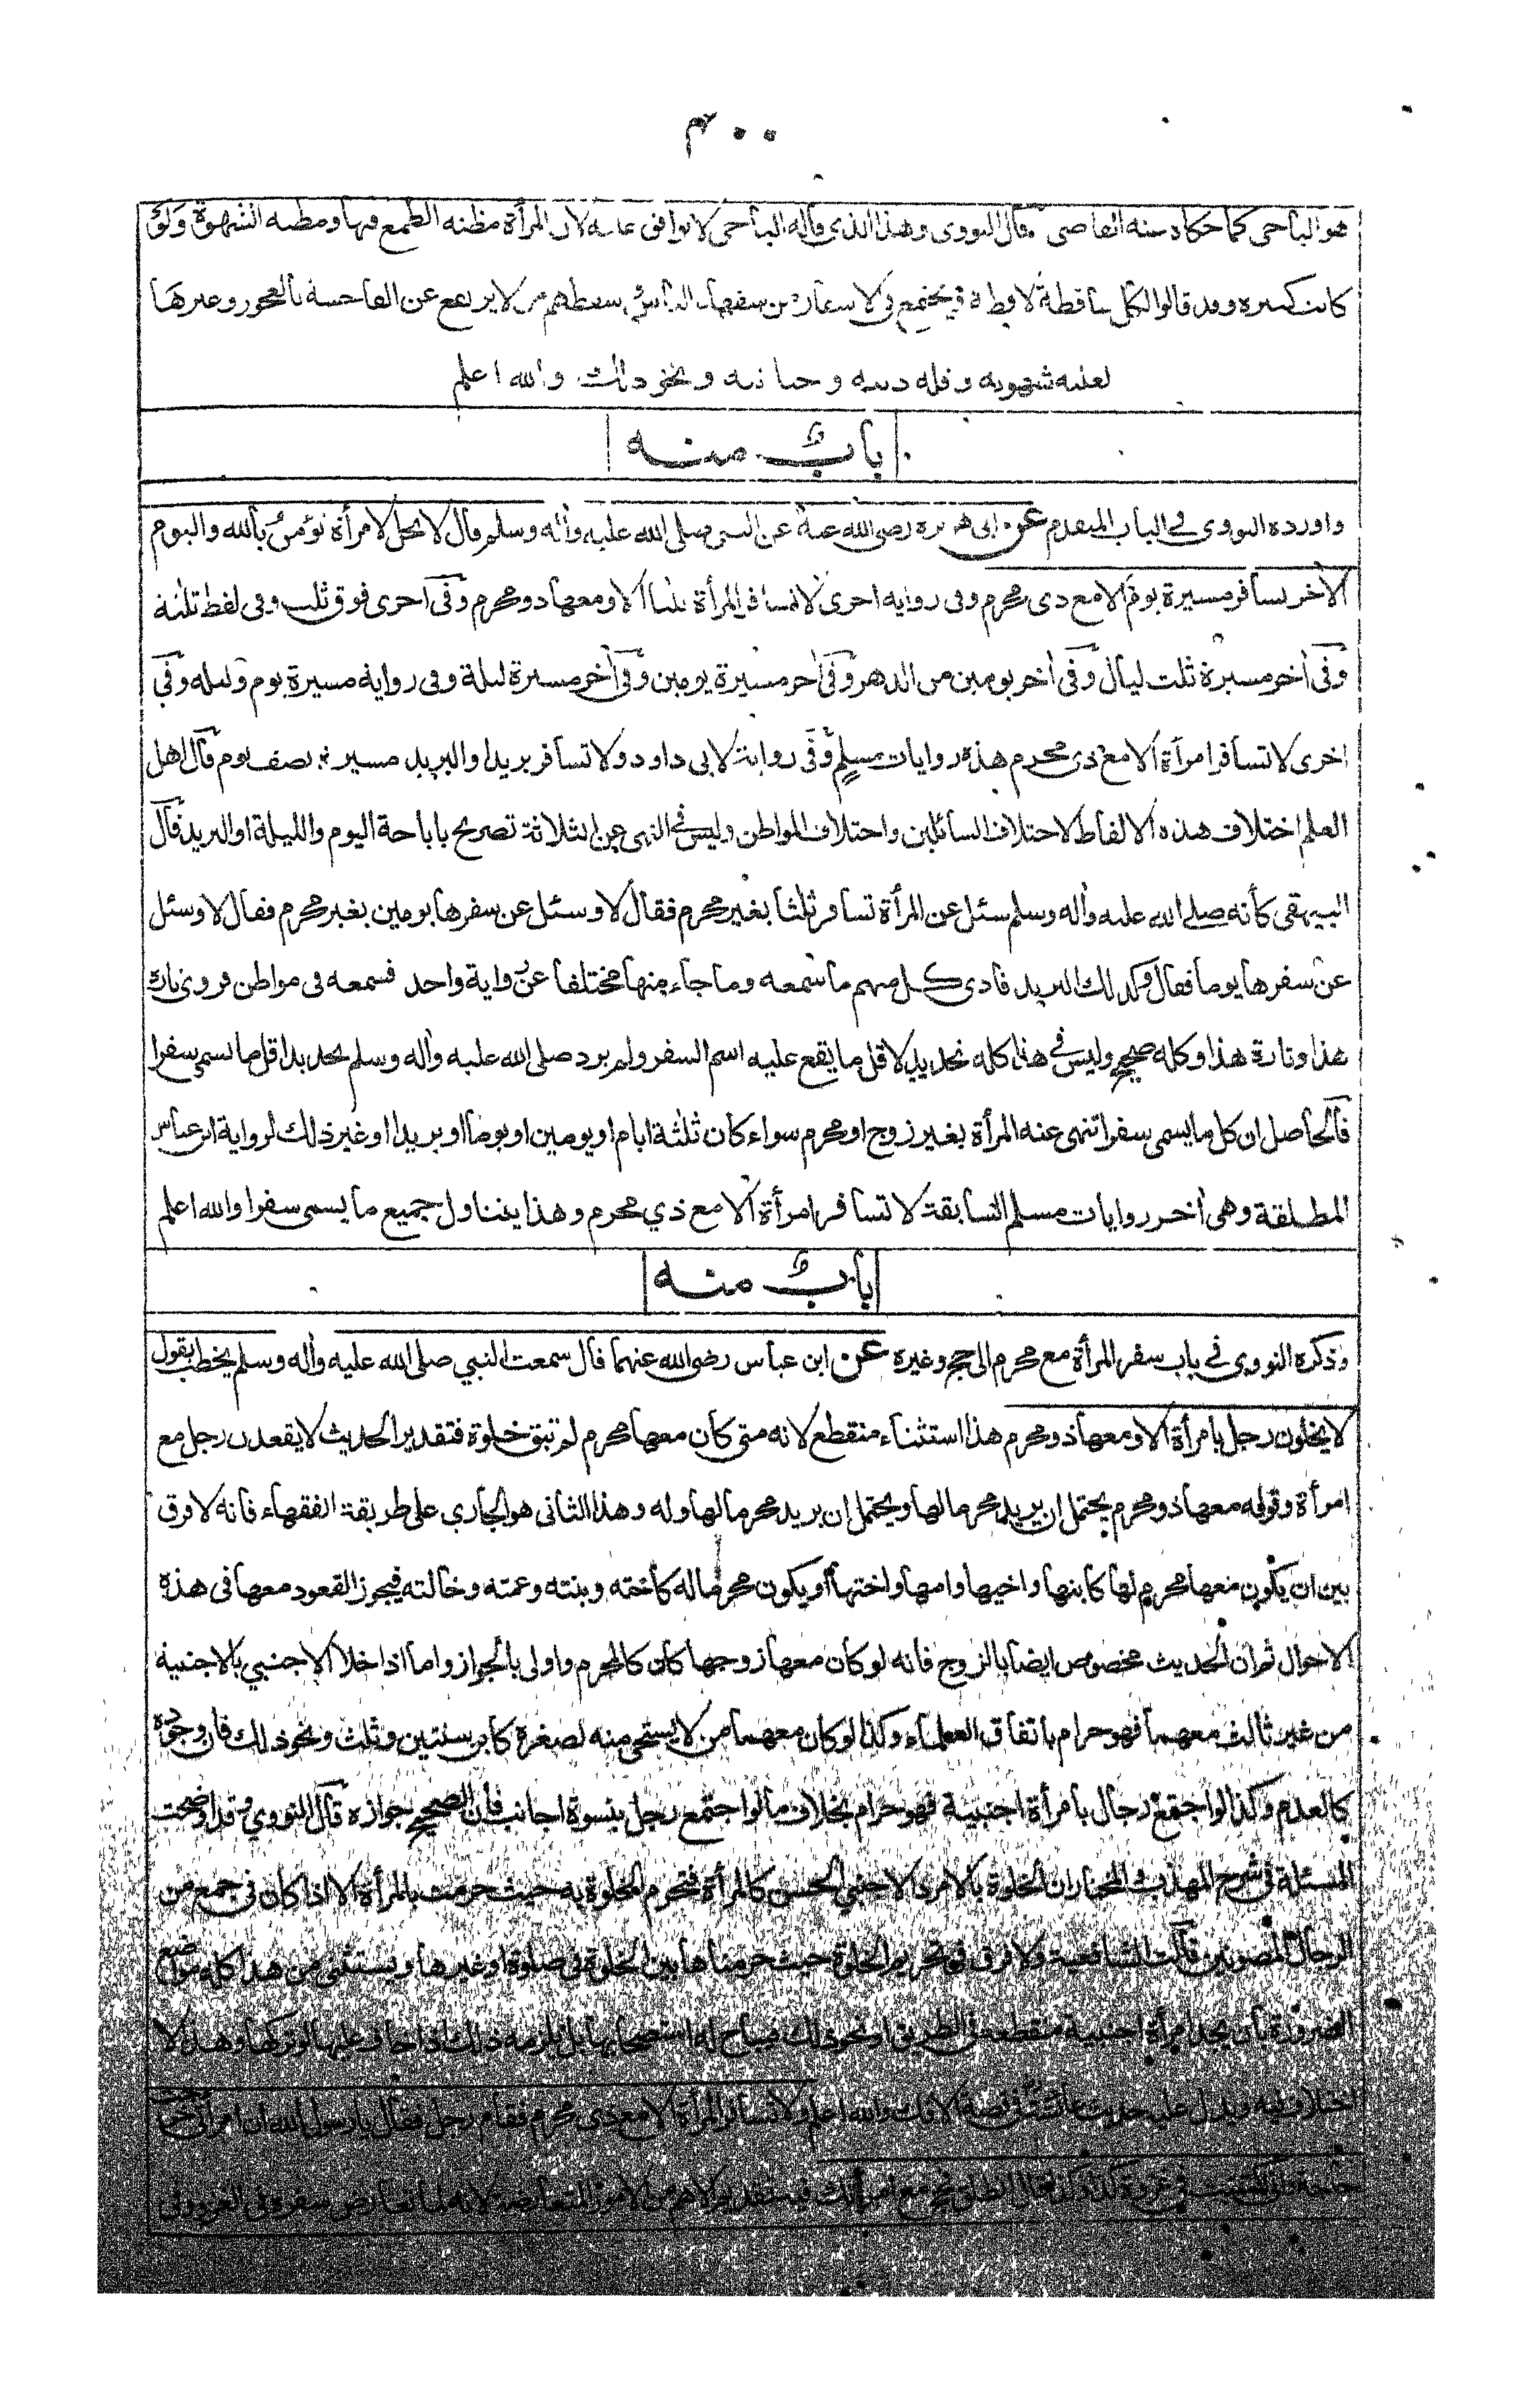 ٤٠٠
هو الباجى كما حكاه عنه القاضى قال النووى وهذا الذى قاله الباجى لا يوافق عليه لان المرأة مظنه الطمع فيها ومظنه الشهوة ولو
كانت كبيره وقد قالوا لكل ساقطة لاقطة ويجتمع فى الاسفار من سفهاء الناس وسقطهم من لا يرتفع عن الفاحشة بالعجوز وغيرها
لغلبه شهوته وقله دينه وخيانته ونحو ذلك والله اعلم
باب منه
واورده النووى فى الباب المتقدم عن ابى هريرة رضى الله عنه عن النبى صلى الله عليه واله وسلم قال لا يحل لامرأة تؤمن بالله واليوم
الاخر تسافر مسيرة يوم الا مع ذى محرم وفى روايه اخرى لا تسافر المرأة ثلثا الا ومعها ذو محرم وفى اخرى فوق ثلث وفى لفظ ثلثة
وفى اخر مسيرة ثلث ليال وفى اخر يومين من الدهر وفى اخر مسيرة يومين وفى اخر مسيرة ليلة وفى رواية مسيرة يوم وليله وفى
اخرى لا تسافر امرأة الا مع ذى محرم هذه روايات مسلم وفى رواية لابى داود ولا تسافر بريدا والبريد مسيرة نصف يوم قال اهل
العلم اختلاف هذه الالفاظ لاختلاف السائلين واختلاف المواطن وليس فى النهى عن الثلاثة تصريح باباحة اليوم والليلة او البريد قال
البيهقى كأنه صلى الله عليه واله وسلم سئل عن المرأة تسافر ثلثا بغير محرم فقال لا وسئل عن سفرها يومين بغير محرم فقال لا وسئل
عن سفرها يوما فقال وكذلك البريد فادى كل منهم ما سمعه وما جاء منها مختلفا عن رواية واحد فسمعه فى مواطن فروى تارة
هذا وتارة هذا وكله صحيح وليس فى هذا كله تحديد لاقل ما يقع عليه اسم السفر ولم يرد صلى الله عليه واله وسلم تحديد اقل ما يسمى سفرا
فالحاصل ان كل ما يسمى سفرا تنهى عنه المرأة بغير زوج او محرم سواء كان ثلثة ايام او يومين او يوما او بريدا او غير ذلك لرواية ابن عباس
المطلقة وهى اخر روايات مسلم السابقة لا تسافر امرأة الا مع ذي محرم وهذا يتناول جميع ما يسمى سفرا والله اعلم
باب منه
وذكره النووى فى باب سفر المرأة مع محرم الى حج وغيره عن ابن عباس رضى الله عنهما قال سمعت النبي صلى الله عليه واله وسلم يخطب يقول
لا يخلون رجل بامرأة الا ومعها ذو محرم هذا استثناء منقطع لانه متى كان معها محرم لم تبق خلوة فتقدير الحديث لا يقعدن رجل مع
امرأة وقوله معها ذو محرم يحتمل ان يريد محرما لها ويحتمل ان يريد محرما لها وله وهذا الثانى هو الجارى على طريقة الفقهاء فانه لا فرق
بين ان يكون معها محرم لها كابنها واخيها وامها واختها أو يكون محرما له كأخته وبنته وعمته وخالته فيجوز القعود معها فى هذه
الاحوال ثم ان الحديث مخصوص ايضا بالزوج فانه لو كان معها زوجها كان كالمحرم واولى بالجواز واما اذا خلا الاجنبي بالاجنبية
من غير ثالث معهما فهو حرام باتفاق العلماء وكذا لو كان معهما من لا يستحى منه لصغره كابن سنتين وثلث ونحو ذلك فان وجوده
كالعدم وكذا لو اجتمع رجال بامرأة اجنبية فهو حرام بخلاف ما لو اجتمع رجل بنسوة اجانب فان الصحيح جوازه قال النووي وقد اوضحت
المسئلة فى شرح المهذب والمختار ان الخلوة بالامرد الاجنبي الحسن كالمرأة فتحرم الخلوة به حيث حرمت بالمرأة الا اذا كان فى جمع من
الرجال المصونين قالت الشافعية ولا فرق فى تحريم الخلوة حيث حرمناها بين الخلوة فى صلوة او غيرها ويستثنى من هذا كله مواضع
الضرورة بان يجد امرأة اجنبية منقطعة فى الطريق او نحو ذلك فيباح له استصحابها بل يلزمه ذلك اذا خاف عليها لو تركها وهذا لا
اختلاف فيه ويدل عليه حديث عائشة فى قصة الافك والله اعلم ولا تسافر المرأة الا مع ذى محرم فقام رجل فقال يا رسول الله ان امرأتى خرجت
حاجة وانى اكتتبت فى غزوة كذا وكذا قال انطلق فحج مع امرأتك فيه تقديم الاهم من الامور المتعارضة لانه لما تعارض سفره فى الغزو وفى